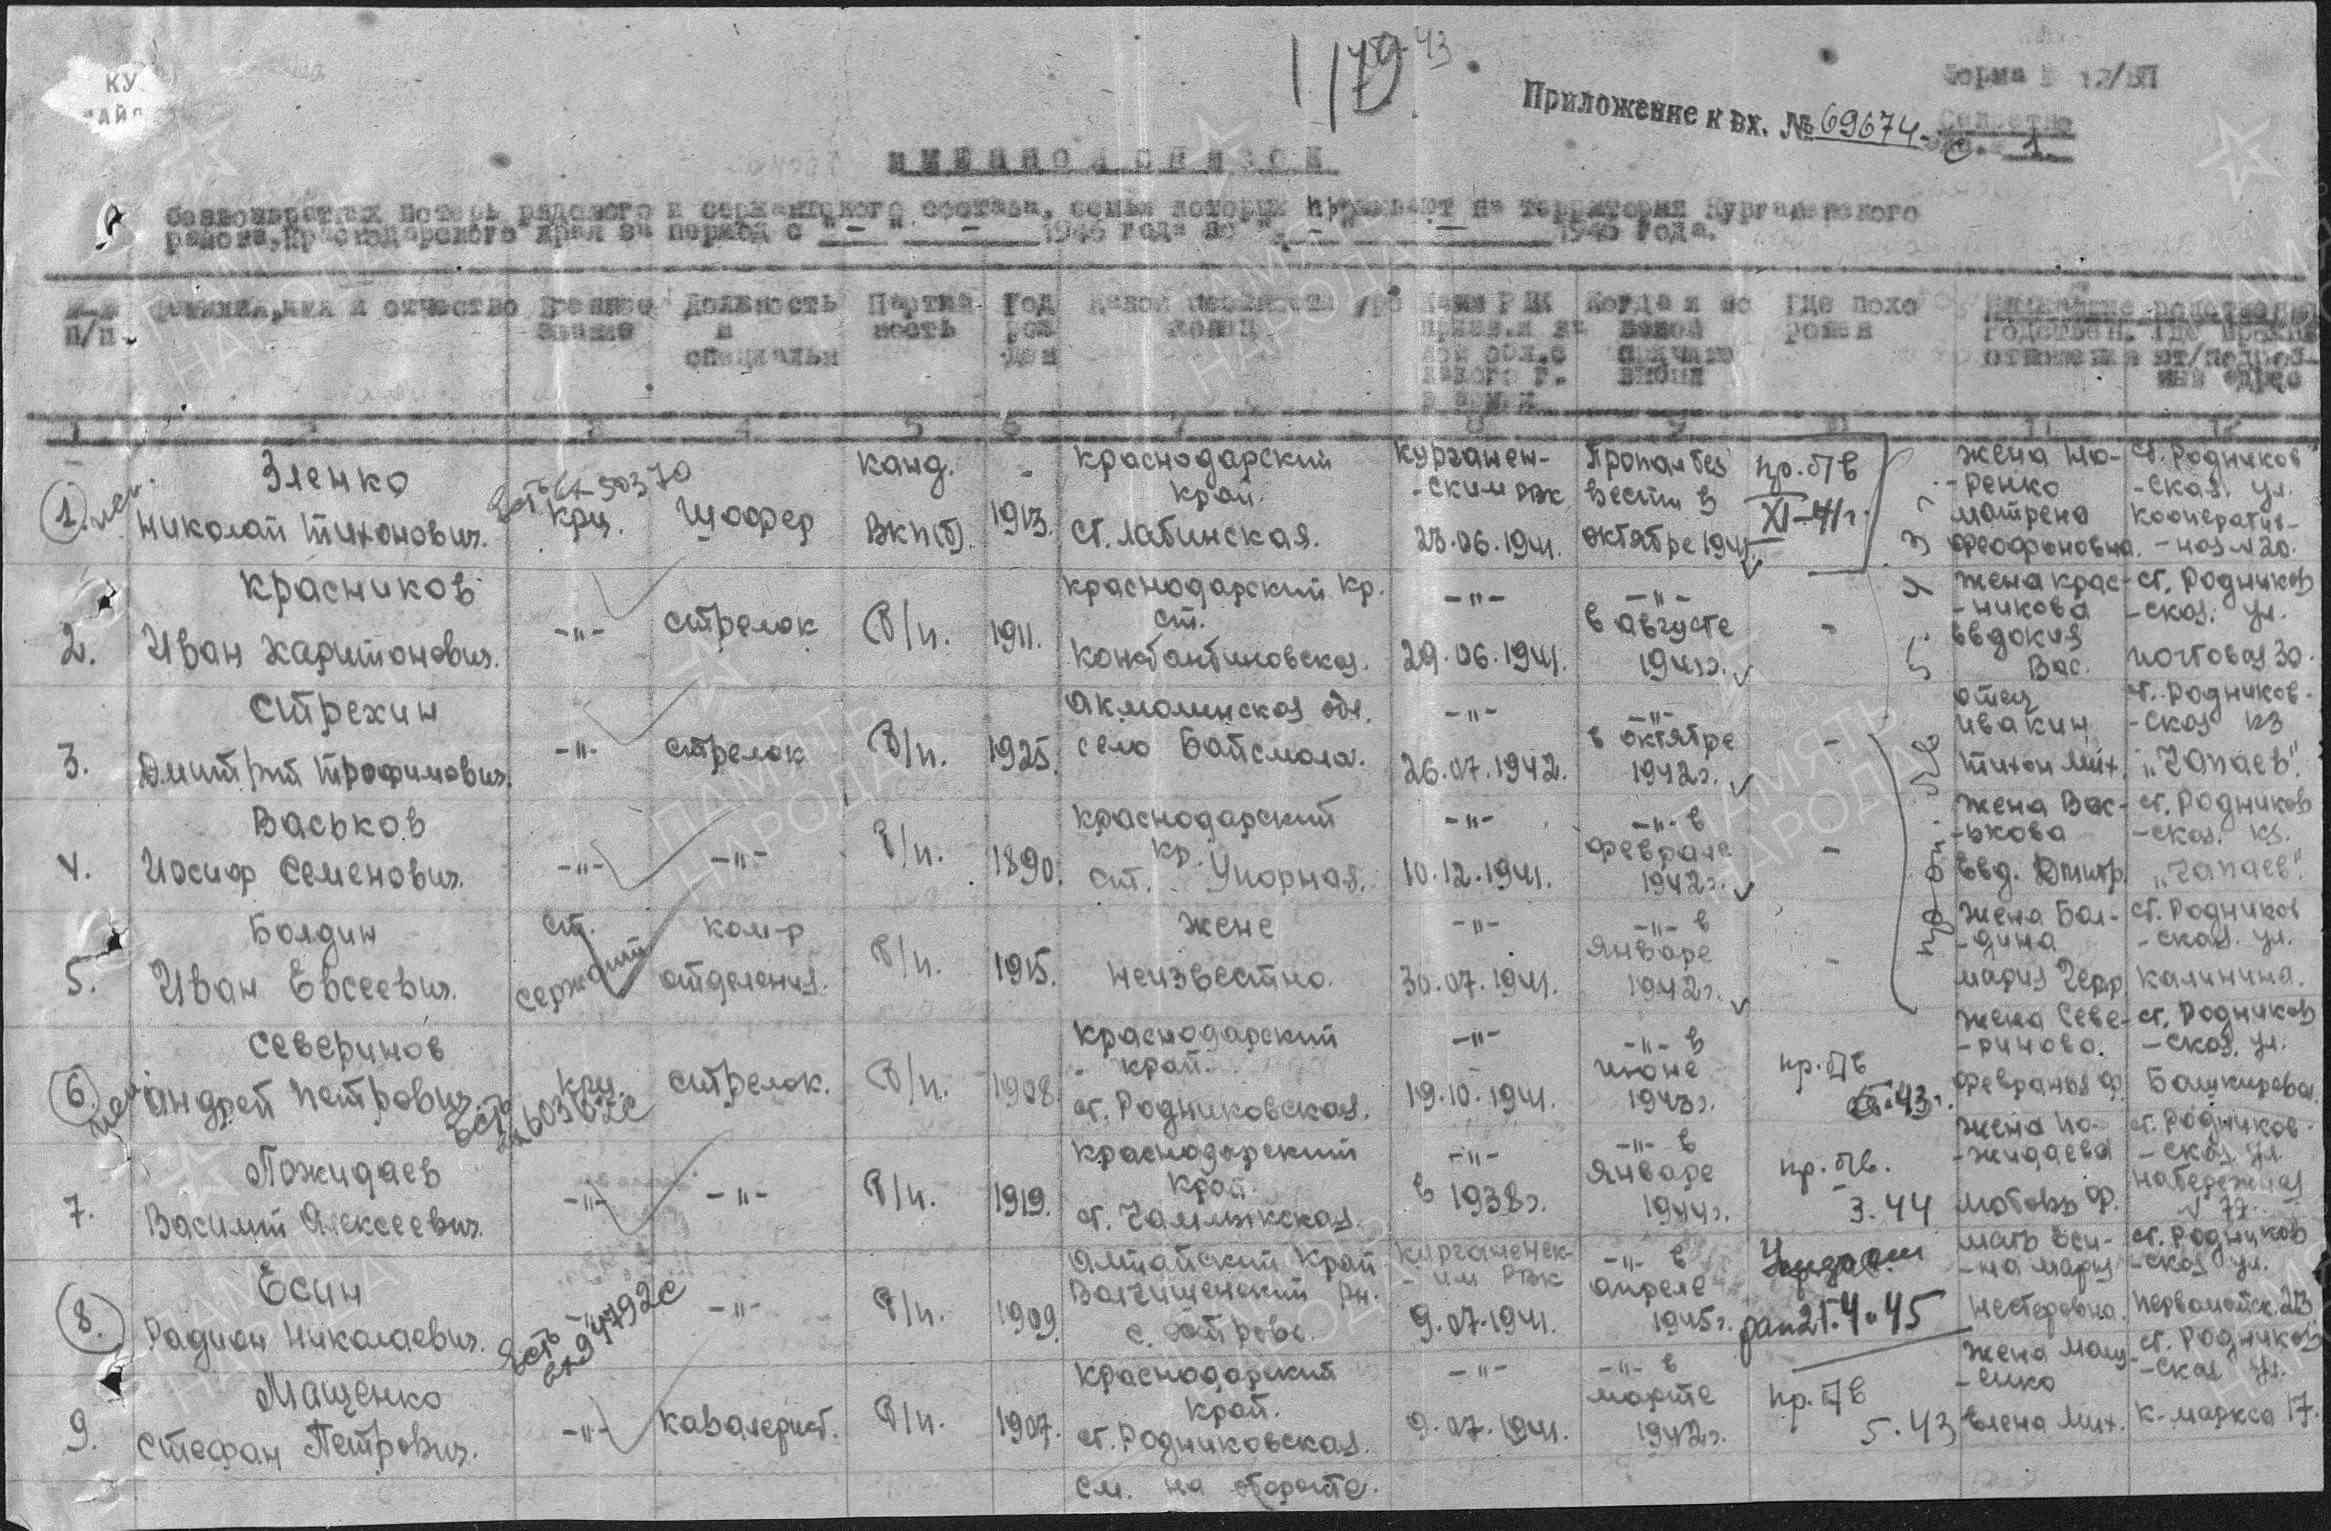 1179 43
Форма № 12/БП
Приложение к вх. № 69674-с
Секретно
Экз. № 1.
КУ
РАЙ
ИМЕННОЙ СПИСОК
безвозвратных потерь рядового и сержантского состава, семьи которых проживают на территории Курганенского
района, Краснодарского края за период с "-" - 1946 года по "-" - 1946 года.
№ № п/п
Фамилия, имя и отчество
Военное звание
Должность и специальн
Партийность
Год рожден
Какой местности уроженец
Каким РВК призван какой обл. с какого г. в армии
Когда и по какой причине выбыл
Где похоронен
Родствен. отношения
где проживают/подробный адрес
1 2 3 4 5 6 7 8 9 10 11 12
1. Зленко Николай Тихонович.
Есть 50370
крц.
Шофер
Канд. ВКП(б).
1913.
Краснодарский край. ст. Лабинская.
Курганен-ским РВК 23.06.1941.
Пропал без вести в октябре 1941г.
пр. б/в XI-41г.
жена матрена
ст. Родников-ская, ул. кооператив-ная №20.
2. Красников Иван Харитонович.
-"-
стрелок
б/п.
1911.
Краснодарский кр. ст. Константиновская.
-"- 29.06.1941.
-"- в августе 1941г.
-
жена Крас-никова Евдокия Вас.
ст. Родников-ская, ул. почтовая 30.
3. Стрехин Дмитрий Трофимович.
-"-
стрелок
б/п.
1925.
Акмолинская обл. село Байсмола.
-"- 26.07.1942.
-"- в октябре 1942г.
-
отец Ивакин Тихон Мих.
ст. Родников-ская кз „Чапаев".
4. Васьков Иосиф Семенович.
-"-
-"-
б/п.
1890.
Краснодарский кр. ст. Упорная.
-"- 10.12.1941.
-"- в феврале 1942г.
-
жена Вас-ькова Евд. Дмитр.
ст. Родников-ская. кз. „Чапаев".
5. Болдин Иван Евсеевич.
ст. сержант
ком-р отделения.
б/п.
1915.
жене неизвестно.
-"- 30.07.1941.
-"- в январе 1942г.
-
жена Бол-дина Мария
ст. Родников-ская. ул. Калинина.
6. Северинов Андрей Петрович.
Есть
крц.
стрелок.
б/п.
1908.
Краснодарский край. ст. Родниковская.
-"- 19.10.1941.
-"- в июне 1943г.
пр. б/в 43г.
жена Севе-ринова.
ст. Родников-ская, ул.
7. Пожидаев Василий Алексеевич.
-"-
-"-
б/п.
1919.
Краснодарский край. ст. Чамлыкская.
-"- в 1938г.
-"- в январе 1944г.
пр. б/в. 3.44
жена По-жидаева Любовь Ф.
ст. Родников-ская ул. набережная № 77.
8. Есин Радион Николаевич.
-"-
Есть 94792с
-"-
б/п.
1909.
Алтайский край с.
Курганенск-им РВК 9.07.1941.
-"- в апреле 1945г.
ран 21.4.45
мать Еси-на Мария Нестеровна.
ст. Родников-ская ул. первомайск.
9. Мащенко Стефан Петрович.
-"-
кавалерист.
б/п.
1907.
Краснодарский край. ст. Родниковская.
-"- 9.07.1941.
-"- в марте 1942г.
пр. б/в 5.43
жена Мащ-енко Елена Мих.
ст. Родников-ская ул. К-маркса 17.
см. на обороте.